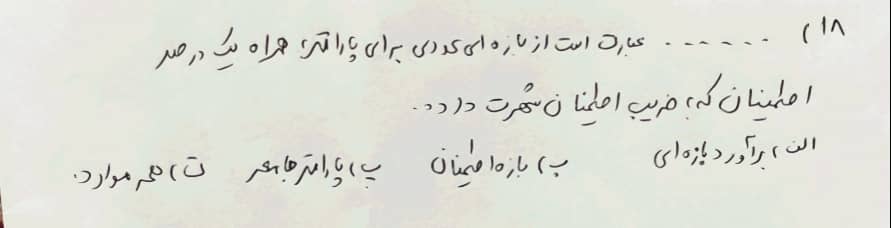 ۱۸) ...... عبارت است از بازه ای عددی برای پارامتر، همراه یک درصد
اطمینان که به ضریب اطمینان شهرت دارد.
الف) برآورد بازه ای ب) بازه اطمینان پ) پارامتر جامعه ت) همه موارد.